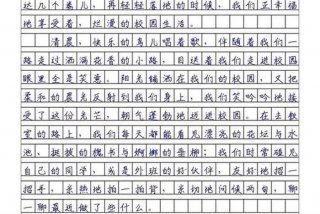 达几个来儿，再轻轻落地的时候，我们正幸福
地享受着，烂漫的校园生活。
清晨，快乐的鸟儿唱着歌，伴随着我们一
路走过洒满花香的小路，目送着我们走进校园
眼里全是笑意。阳光铺洒在我们的校园，又把
柔和的晨光反射到我们身上，我们笑吟吟地接
受了这份光芒，朝气蓬勃地迈进校园。在去教
室的路上，我们每天都能看见漂亮的花坛与水
池、挺拔的槐书与婀娜的垂柳；我们时常碰见
自己的同学，或是外班的好伙伴，友好地招一
招手，亲热地拍一拍背，亲切地问候两句，聊
一聊最近做了些什么。